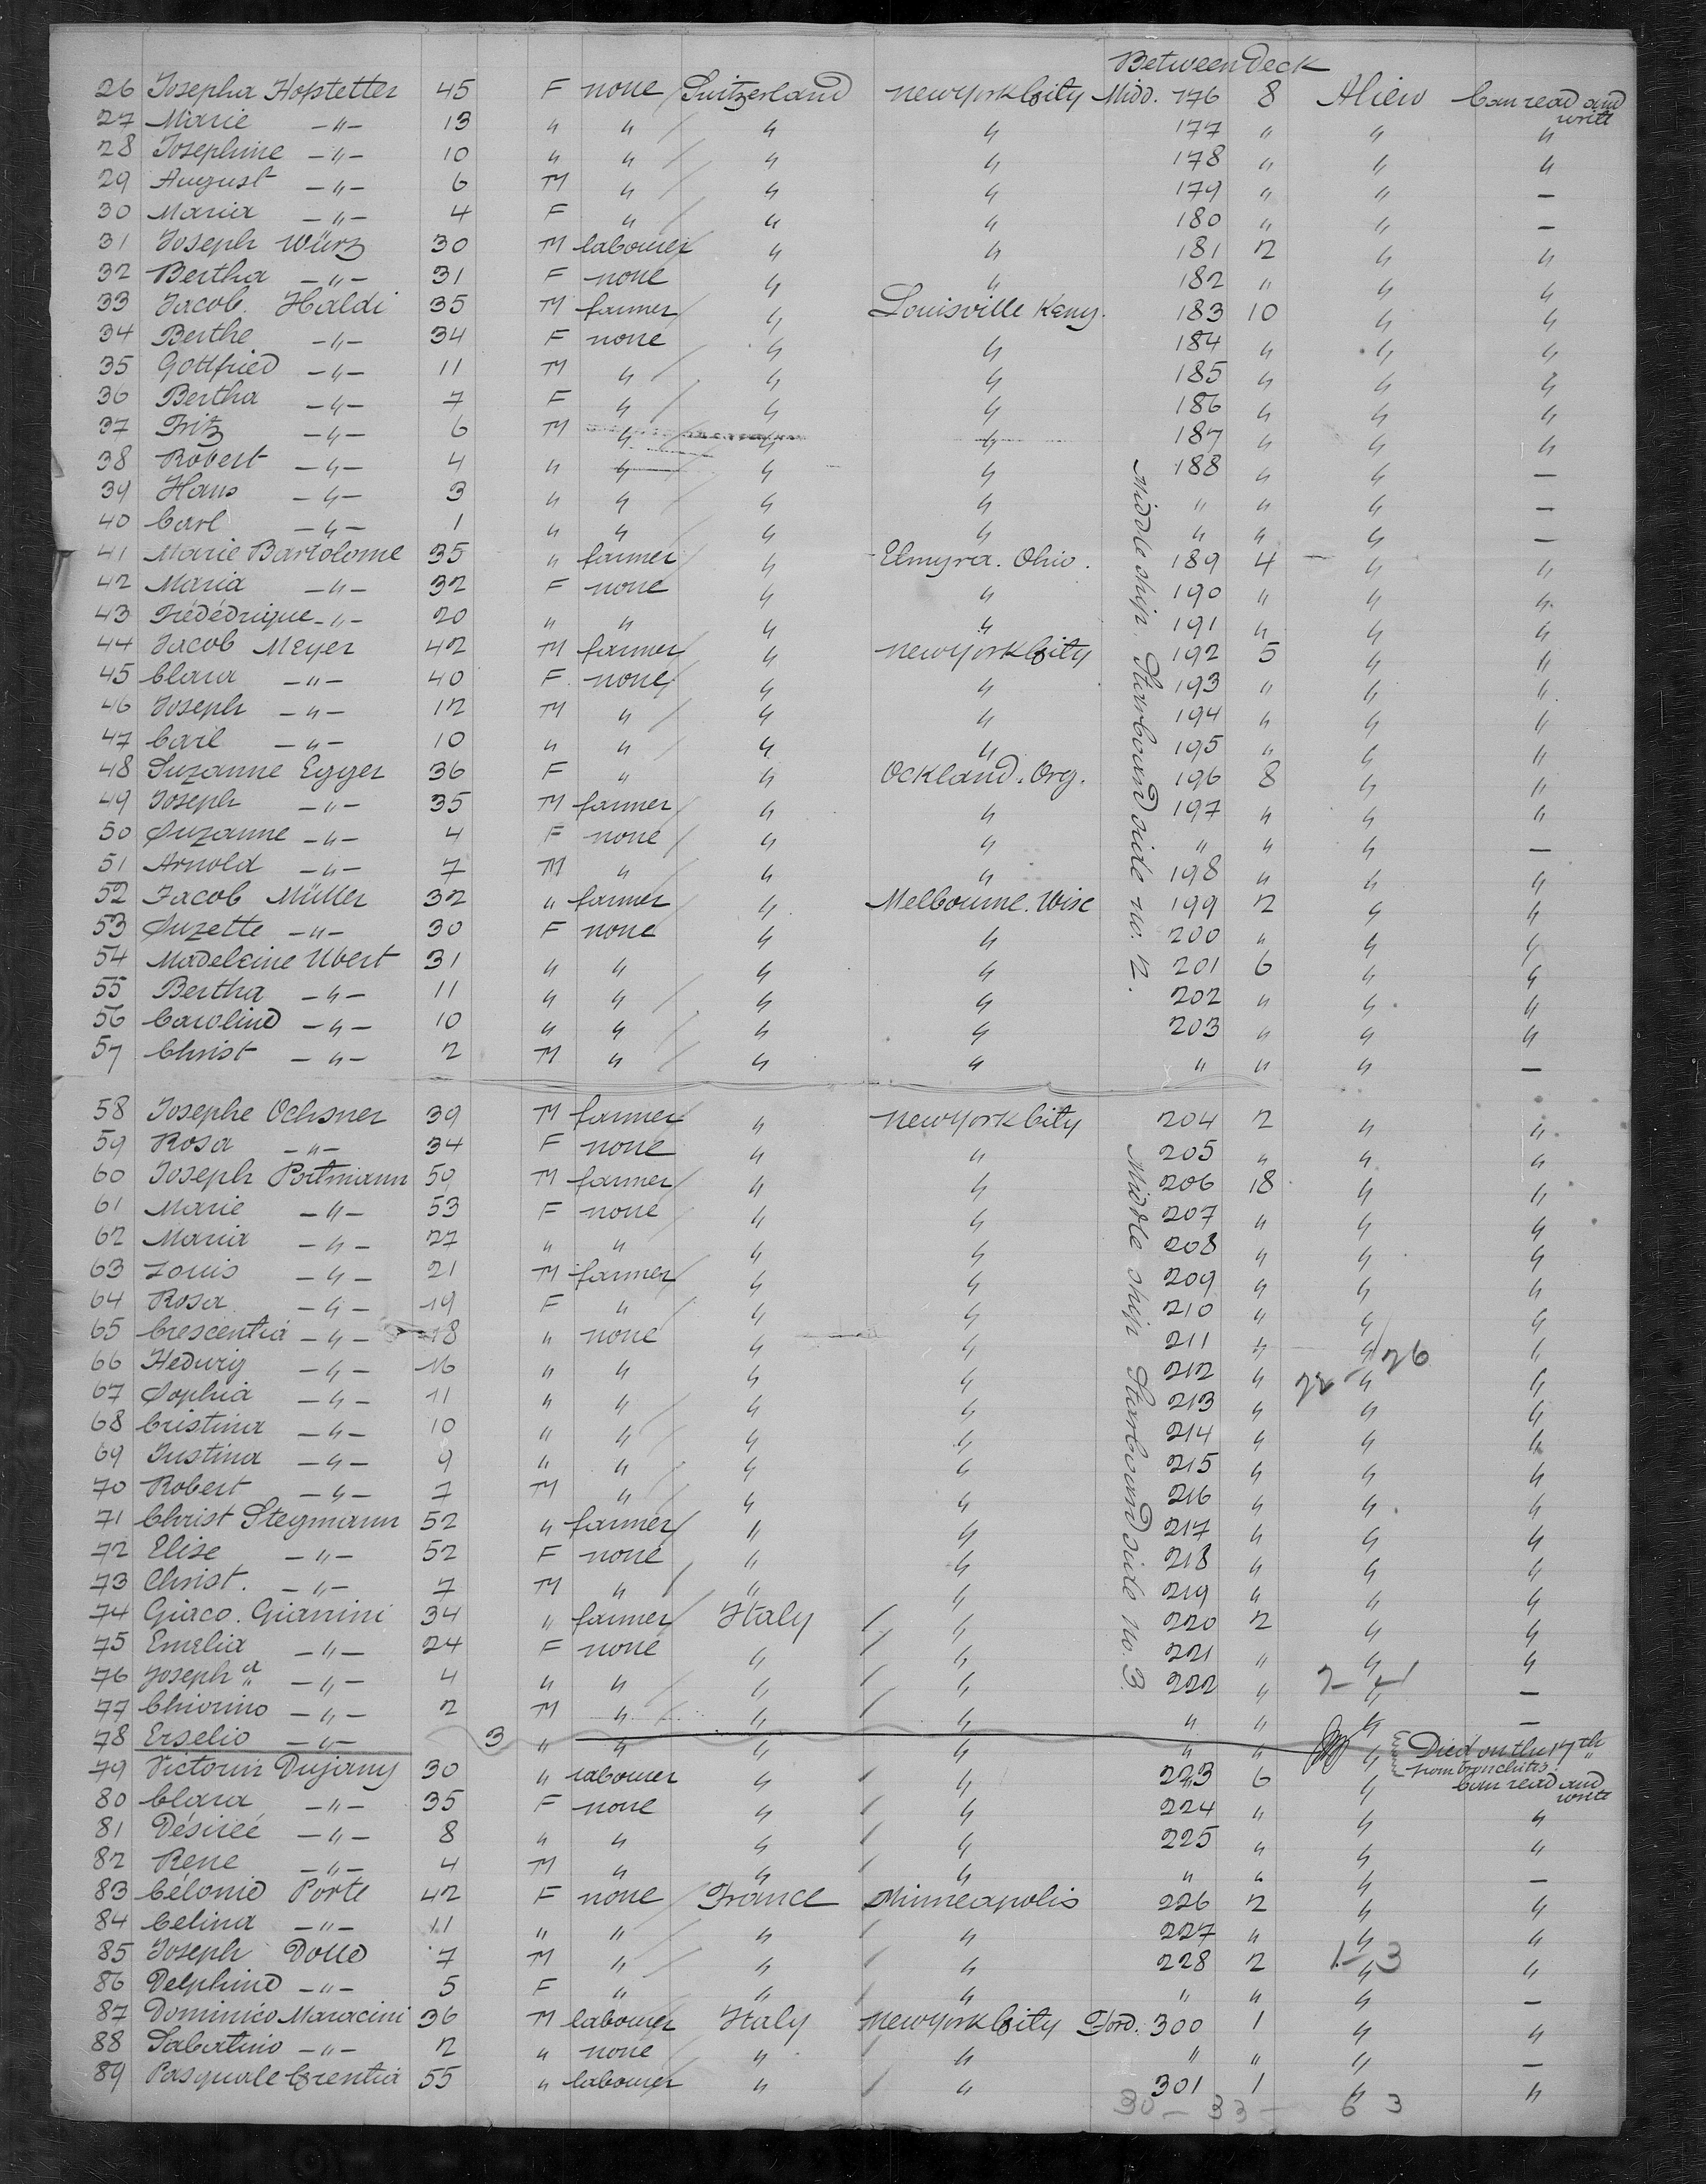 Between Deck
26 Josepha Hofstetter 45 F none / Switzerland New York City Midd. 176 8 Alien Can read and write
27 Marie —"— 13 " " / " " 177 " " "
28 Josephine —"— 10 " " / " " 178 " " "
29 August —"— 6 M " / " " 179 " " —
30 Maria —"— 4 F " / " " 180 " " —
31 Joseph Würz 30 M labourer / " " 181 2 " "
32 Bertha —"— 31 F none / " " 182 " " "
33 Jacob Haldi 35 M farmer / " Louisville Keny. 183 10 " "
34 Berthe —"— 34 F none " " 184 " " "
35 Gottfried —"— 11 M " / " " 185 " " "
36 Bertha —"— 7 F " / " " 186 " " "
37 Fritz —"— 6 M " / " " 187 " " "
38 Robert —"— 4 " " / " " 188 " " —
39 Hans —"— 3 " " / " " " " " —
40 Carl —"— 1 " " / " " " " " —
41 Marie Bartolome 35 " farmer / " Elmyra. Ohio. 189 4 " "
42 Maria —"— 32 F none / " " 190 " " "
43 Frédédrique —"— 20 " " " " 191 " " "
44 Jacob Meyer 42 M farmer / " New York City 192 5 " "
45 Clara —"— 40 F. none / " " 193 " " "
46 Joseph —"— 12 M " / " " 194 " " "
47 Carl —"— 10 " " / " " 195 " " "
48 Suzanne Egger 36 F " " Ockland. Org. 196 8 " "
49 Joseph —"— 35 M farmer / " " 197 " " "
50 Suzanne —"— 4 F none / " " " " " —
51 Arnold —"— 7 M " / " " 198 " " "
52 Jacob Müller 32 " farmer / " Melbourne. Wisc 199 2 " "
53 Suzette —"— 30 F none " " 200 " " "
54 Madeleine Ubert 31 " " / " " 201 6 " "
55 Bertha —"— 11 " " / " " 202 " " "
56 Carolind —"— 10 " " / " " 203 " " "
57 Christ —"— 2 M " / " " " " " —
Middle ship. Starboard side no. 2.
58 Josephe Ochsner 39 M farmer / " New York City 204 2 " "
59 Rosa —"— 34 F none / " " 205 " " "
60 Joseph Portmann 50 M farmer / " " 206 18 " "
61 Marie —"— 53 F none / " " 207 " " "
62 Maria —"— 27 " " / " " 208 " " "
63 Louis —"— 21 M farmer / " " 209 " " "
64 Rosa —"— 19 F " / " " 210 " " "
65 Crescentia —"— 18 " none " " 211 " " "
66 Hedwig —"— 16 " " " " 212 " " "
22 — 26
67 Sophia —"— 11 " " / " " 213 " " "
68 Cristina —"— 10 " " / " " 214 " " "
69 Justina —"— 9 " " / " " 215 " " "
70 Robert —"— 7 M " / " " 216 " " "
71 Christ Stegmann 52 " farmer / " " 217 " " "
72 Elise —"— 52 F none / " " 218 " " "
73 Christ. —"— 7 M " / " " 219 " " "
74 Giaco. Gianini 34 " farmer / Italy / " 220 2 " "
75 Emelia —"— 24 F none " / " 221 " " "
76 Joseph a —"— 4 " " " / " 222 " " —
2 — 1
77 Chiorino —"— 2 M " " / " " " " —
Middle ship Starboard side No. 3.
78 Erselio —"— 3 " " " " " " " Died on the 17th from bronchitis.
79 Victorin Dujany 30 " labourer " / " 223 6 " Can read and write
80 Clara —"— 35 F none " / " 224 " " "
81 Désireé —"— 8 " " " / " 225 " " "
82 Rene —"— 4 M " " / " " " " —
83 Célonie Porte 42 F none / France Minneapolis 226 2 " "
84 Celina —"— 11 " " / " / " 227 " " "
85 Joseph Dolle 7 M " / " / " 228 2 " "
1 — 3
86 Delphind —"— 5 F " " / " " " " —
87 Dominico Maracini 36 M labourer Italy New York City Ford. 300 1 " "
88 Sabatino —"— 2 " none " / " " " " —
89 Pasquale Crentia 55 " labourer " / " 301 1 " "
30 — 33 — 63